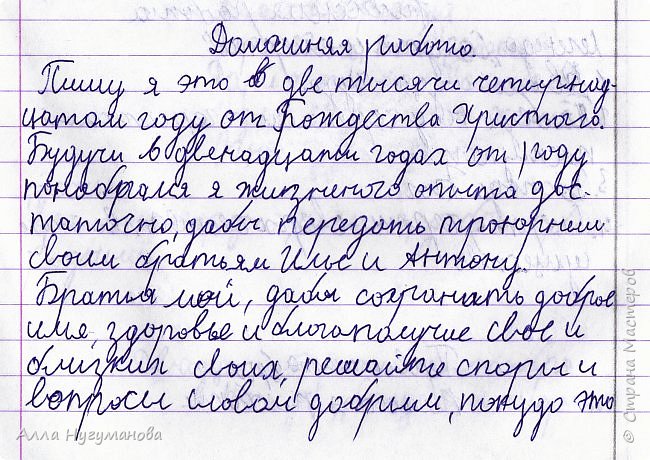 Домашняя работа.
Пишу я это в две тысячи четырнад-
цатом году от Рождества Христого.
Будучи в двенадцати годах от роду
понабрался я жизненого опыта дос-
таточно, дабы передать троюрным
своим братьям Илье и Антону.
Братья мои, дабы сохранить доброе
имя, здоровье и благополучие свое и
близких своих, решайте споры и
вопросы словом добрым, покудо это
Алла Нугуманова
© Страна Мастеров